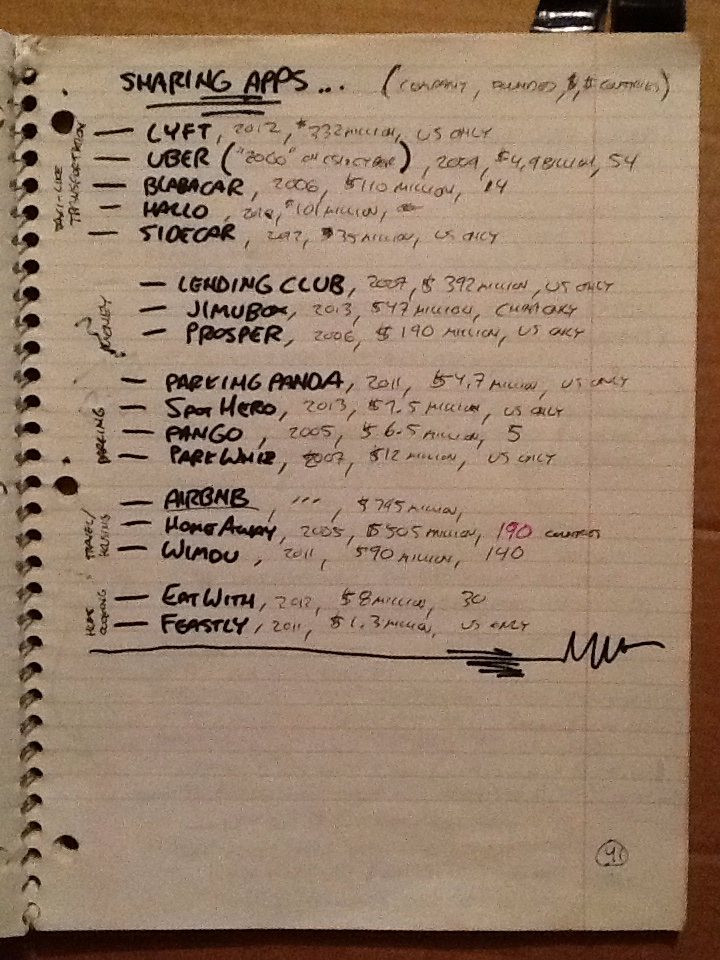 SHARING APPS... (COMPANY, FOUNDED, $, # COUNTRIES)
TAXI-LIKE TRANSPORTATION
— LYFT, 2012, $332 MILLION, US ONLY
— UBER ("2000" ON), 2009, $4.9 BILLION, 54
— BLABACAR, 2006, $110 MILLION, 14
— HALLO, $101 MILLION,
— SIDECAR, 2012, $35 MILLION, US ONLY
MONEY
— LENDING CLUB, 2007, $392 MILLION, US ONLY
— JIMUBOX, 2013, $47 MILLION, CHINA ONLY
— PROSPER, 2006, $190 MILLION, US ONLY
PARKING
— PARKING PANDA, 2011, $4.7 MILLION, US ONLY
— SPOT HERO, 2013, $7.5 MILLION, US ONLY
— PANGO, 2005, $6.5 MILLION, 5
— PARKWHIZ, 2007, $12 MILLION, US ONLY
TRAVEL/
— AIRBNB, ..., $795 MILLION,
— HOMEAWAY, 2005, $505 MILLION, 190 COUNTRIES
— WIMDU, 2011, $90 MILLION, 140
HOME COOKING
— EATWITH, 2012, $8 MILLION, 30
— FEASTLY, 2011, $1.3 MILLION, US ONLY
41